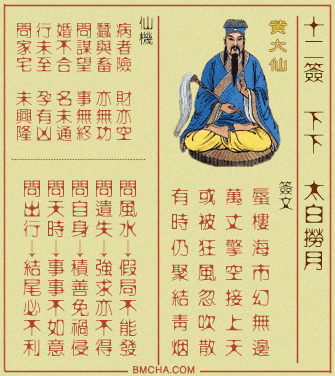 十二簽 下下 太白撈月
黃大仙
簽文
蜃樓海市幻無邊
萬丈擎空接上天
或被狂風忽吹散
有時仍聚結青烟
仙機
病者險 財亦空
蠶與畜 亦無功
問謀望 事無終
婚不合 名未通
行未至 孕有凶
問家宅 未興隆
問風水↓假局不能發
問遺失↓強求亦不得
問自身↓積善免禍侵
問天時↓事事不如意
問出行↓結尾必不利
BMCHA.COM